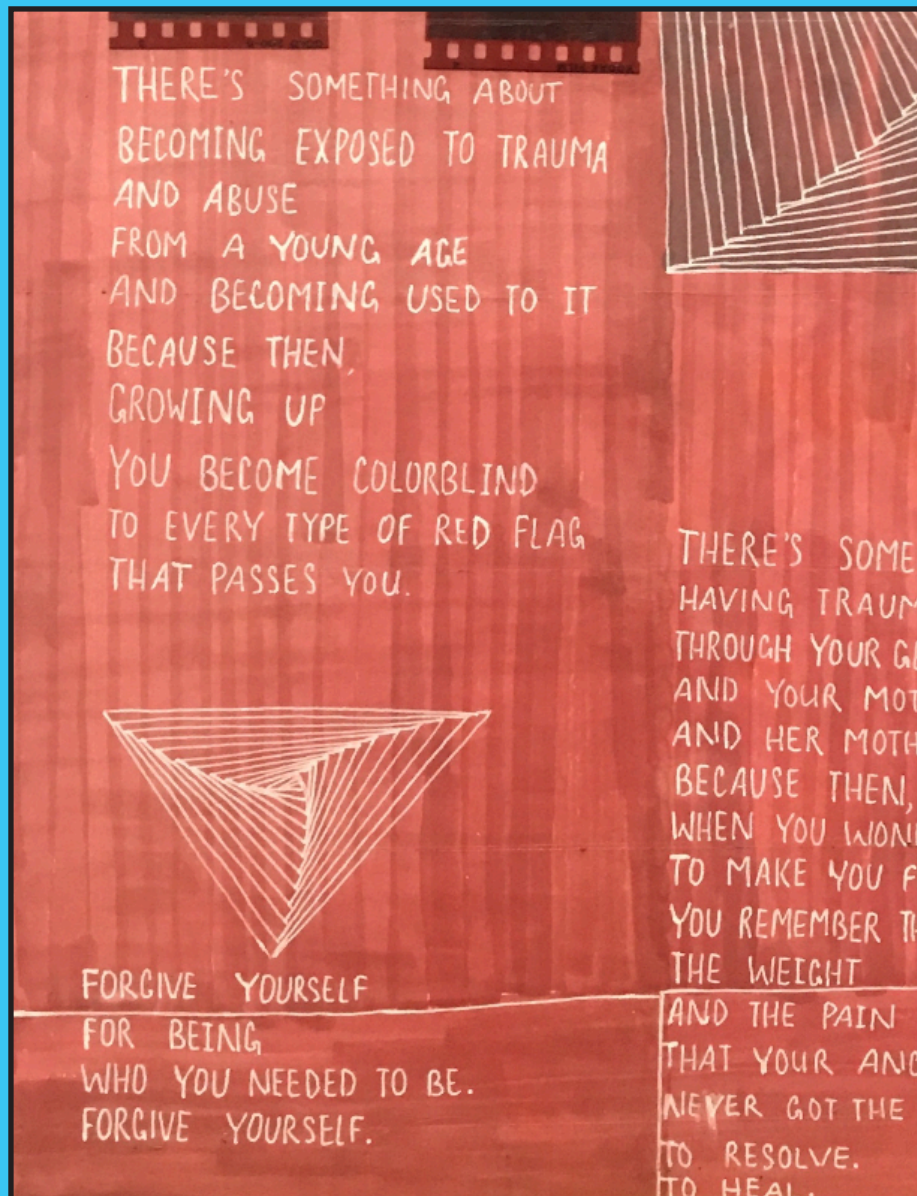 THERE'S SOMETHING ABOUT
BECOMING EXPOSED TO TRAUMA
AND ABUSE
FROM A YOUNG AGE
AND BECOMING USED TO IT
BECAUSE THEN,
GROWING UP
YOU BECOME COLORBLIND
TO EVERY TYPE OF RED FLAG
THAT PASSES YOU.
FORGIVE YOURSELF
FOR BEING
WHO YOU NEEDED TO BE.
FORGIVE YOURSELF.
THERE'S
HAVING
THROUGH YOUR
AND YOUR
AND HER
BECAUSE THEN,
WHEN YOU
TO MAKE YOU
YOU REMEMBER
THE WEIGHT
AND THE PAIN
THAT YOUR
NEVER GOT THE
TO RESOLVE.
TO HEAL.